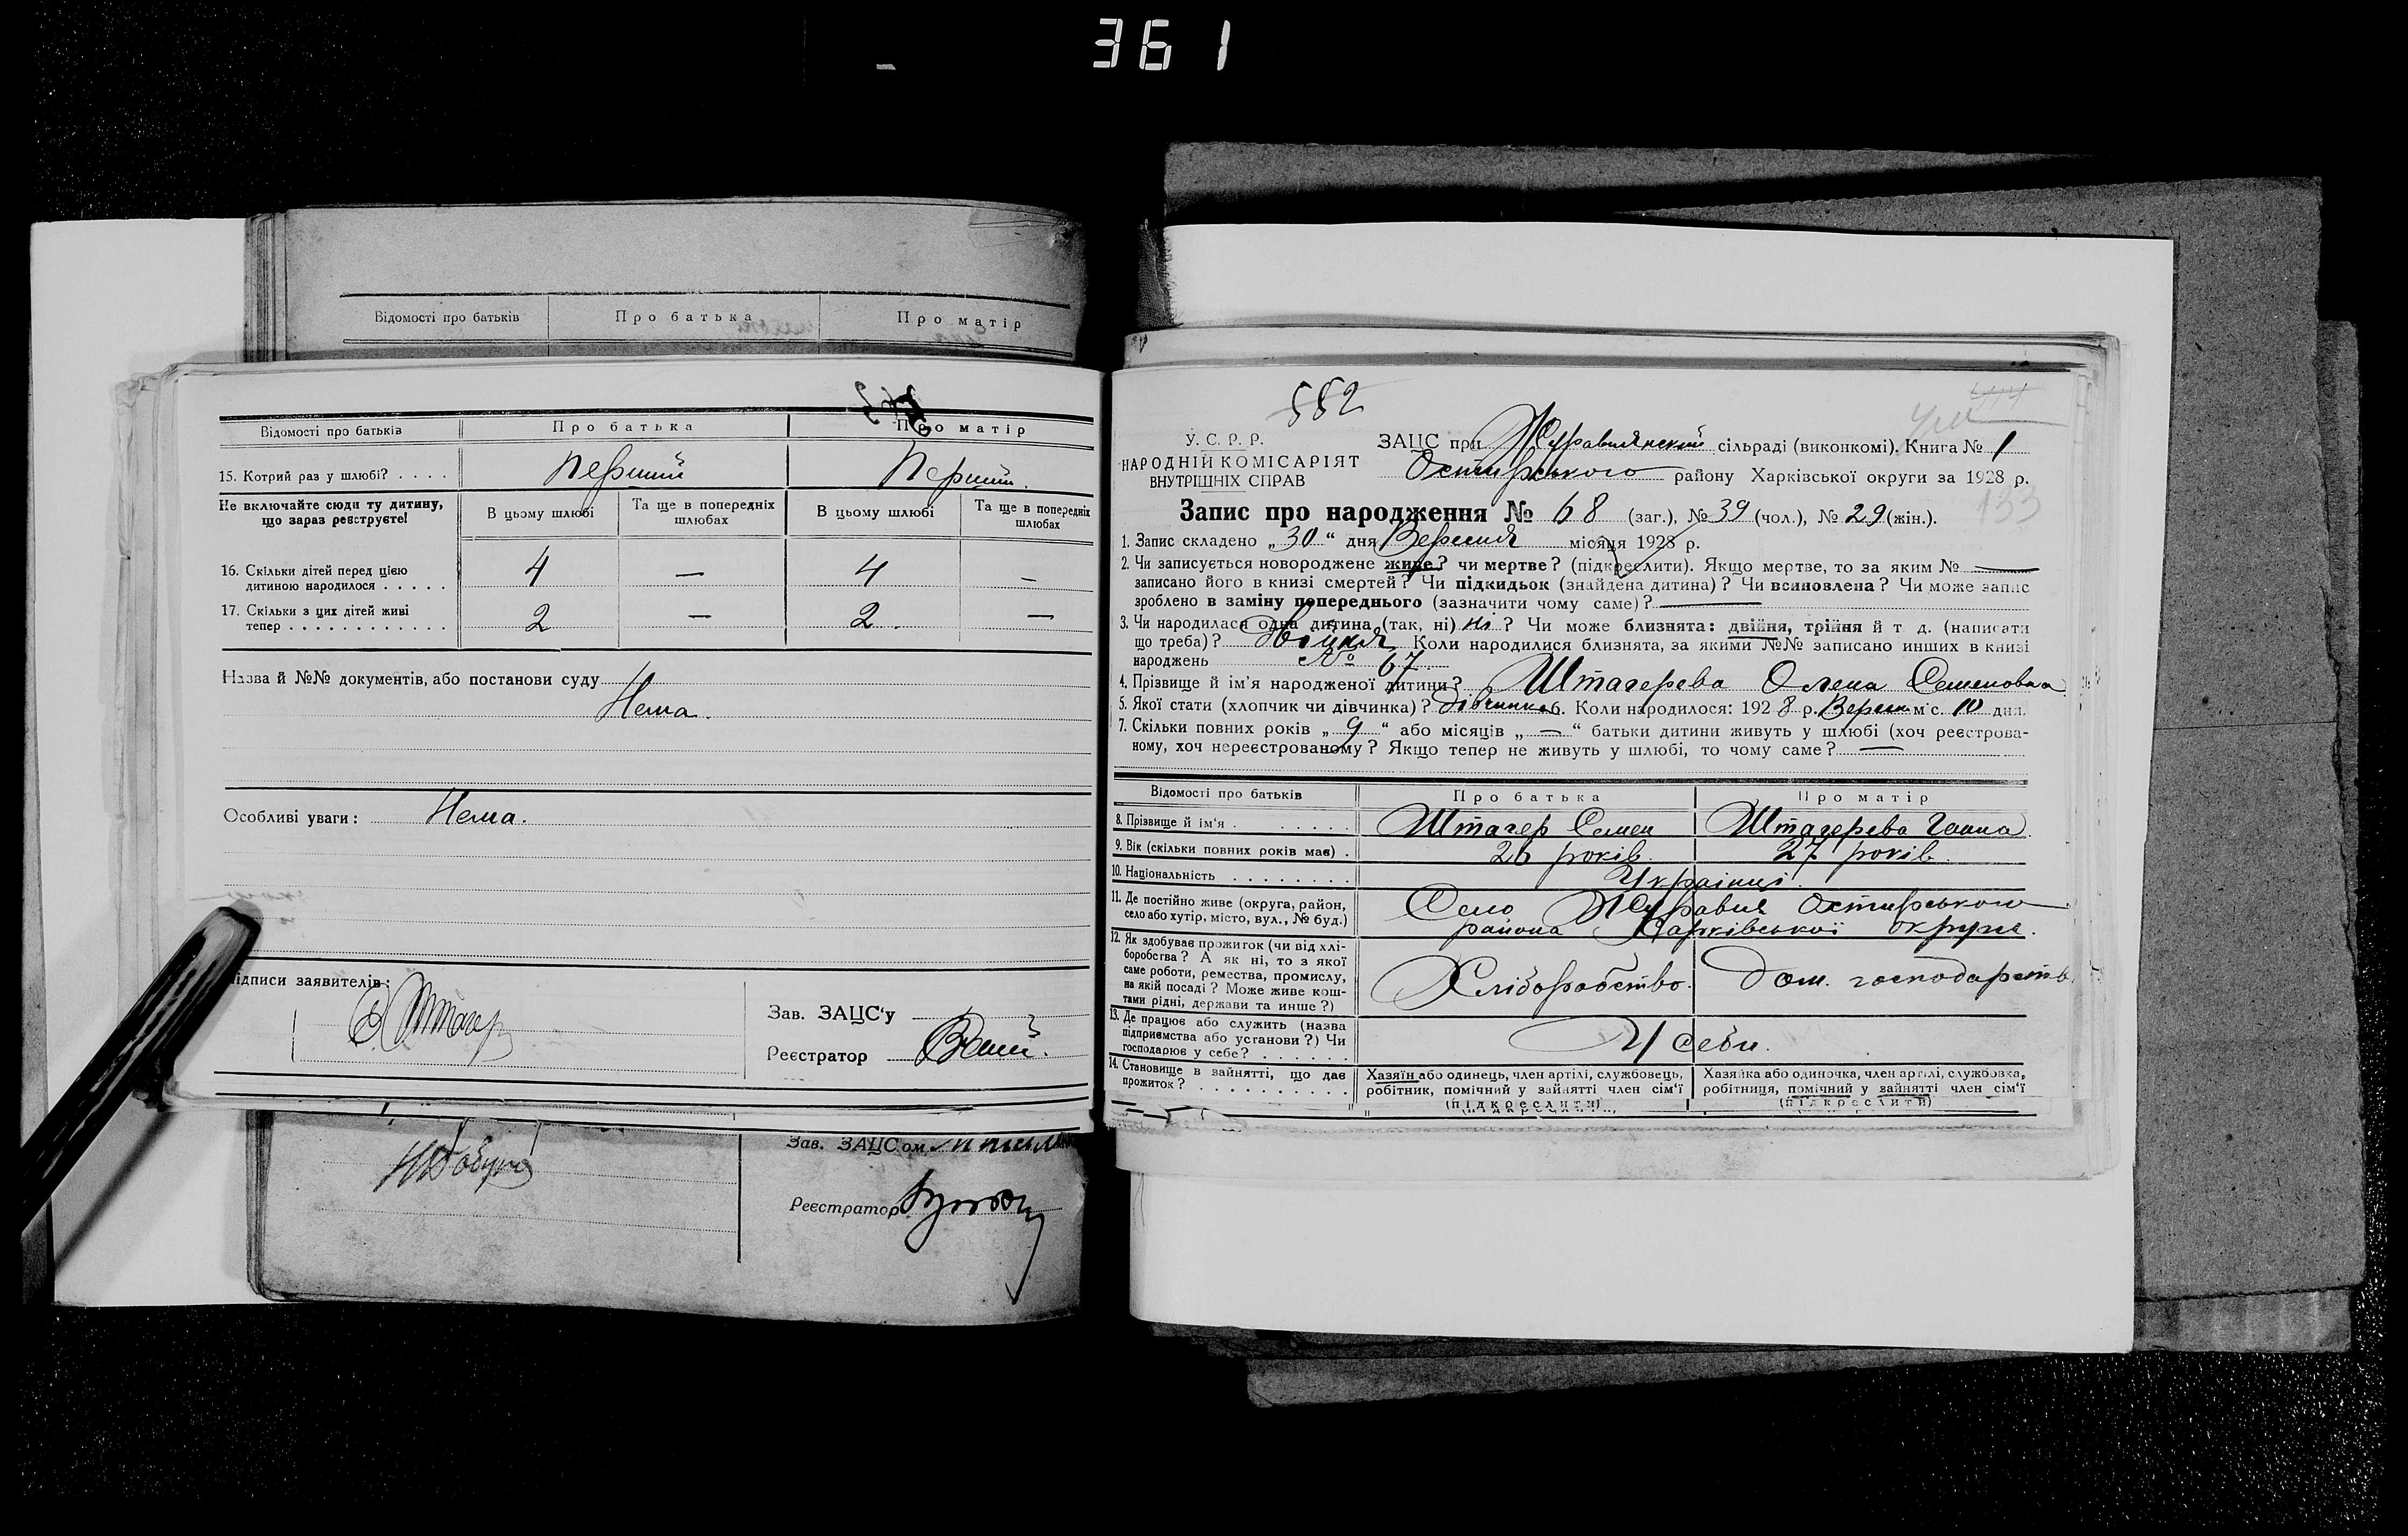 361
Відомості про батьків Про батька Про матір
Відомості про батьків Про батька Про матір
15. Котрий раз у шлюбі? . . . . Перший Перший.
Не включайте сюди ту дитину, що зараз реєструєте!
В цьому шлюбі Та ще в попередніх шлюбах В цьому шлюбі Та ще в попередніх шлюбах
16. Скільки дітей перед цією
дитиною народилося . . . . . 4 — 4 —
17. Скільки з цих дітей живі
тепер . . . . . . . . . . . . 2 — 2. —
Назва й №№ документів, або постанови суду
Нема.
Особливі уваги: Нема.
Підписи заявителів:
Штагер
Зав. ЗАЦС'у
Реєстратор
Зав. ЗАЦС'ом
Реєстратор
552
У. С. Р. Р.
НАРОДНІЙ КОМІСАРІЯТ
ВНУТРІШНІХ СПРАВ
ЗАЦС при Журавлянский сільраді (виконкомі). Книга № 1
Охтирського району Харківської округи за 1928 р.
133
Запис про народження № 68 (заг.), № 39 (чол.), № 29 (жін.).
1. Запис складено „30“ дня Вересня місяця 1928 р.
2. Чи записується новороджене живе? чи мертве? (підкреслити). Якщо мертве, то за яким № —
записано його в книзі смертей? Чи підкидьок (знайдена дитина)? Чи всиновлена? Чи може запис
зроблено в заміну попереднього (зазначити чому саме)? —
3. Чи народилася одна дитина (так, ні) ні? Чи може близнята: двійня, трійня й т. д. (написати
що треба)? двійня Коли народилися близнята, за якими №№ записано инших в книзі
народжень № 67
4. Прізвище й ім'я народженої дитини? Штагерева Олена Семеновна
5. Якої стати (хлопчик чи дівчинка)? дівчинка 6. Коли народилося: 1928 р. Верес. м'с. 10 дня.
7. Скільки повних років „9“ або місяців „—“ батьки дитини живуть у шлюбі (хоч реєстрова-
ному, хоч нереєстрованому? Якщо тепер не живуть у шлюбі, то чому саме? —
Відомості про батьків Про батька Про матір
8. Прізвище й ім'я . . . . . . Штагер Семен Штагерева Ганна.
9. Вік (скільки повних років має) . 26 років. 27 років.
10. Національність . . . . . . . . Українці.
11. Де постійно живе (округа, район,
село або хутір, місто, вул., № буд.)
Село Журавля Охтирського
района Харківської округи.
12. Як здобуває прожиток (чи від хлі-
боробства? А як ні, то з якої
саме роботи, ремества, промислу,
на якій посаді? Може живе кош-
тами рідні, держави та инше?)
Хліборобство. Дом. господарств
13. Де працює або служить (назва
підприємства або установи?) Чи
господарює у себе? . . . . . .
У себи.
14. Становище в зайнятті, що дає
прожиток? . . . . . . . . .
Хазяїн або одинець, член артілі, службовець,
робітник, помічний у зайнятті член сім'ї
(підкреслити)
Хазяйка або одиночка, член артілі, службовка,
робітниця, помічний у зайнятті член сім'ї
(підкреслити)